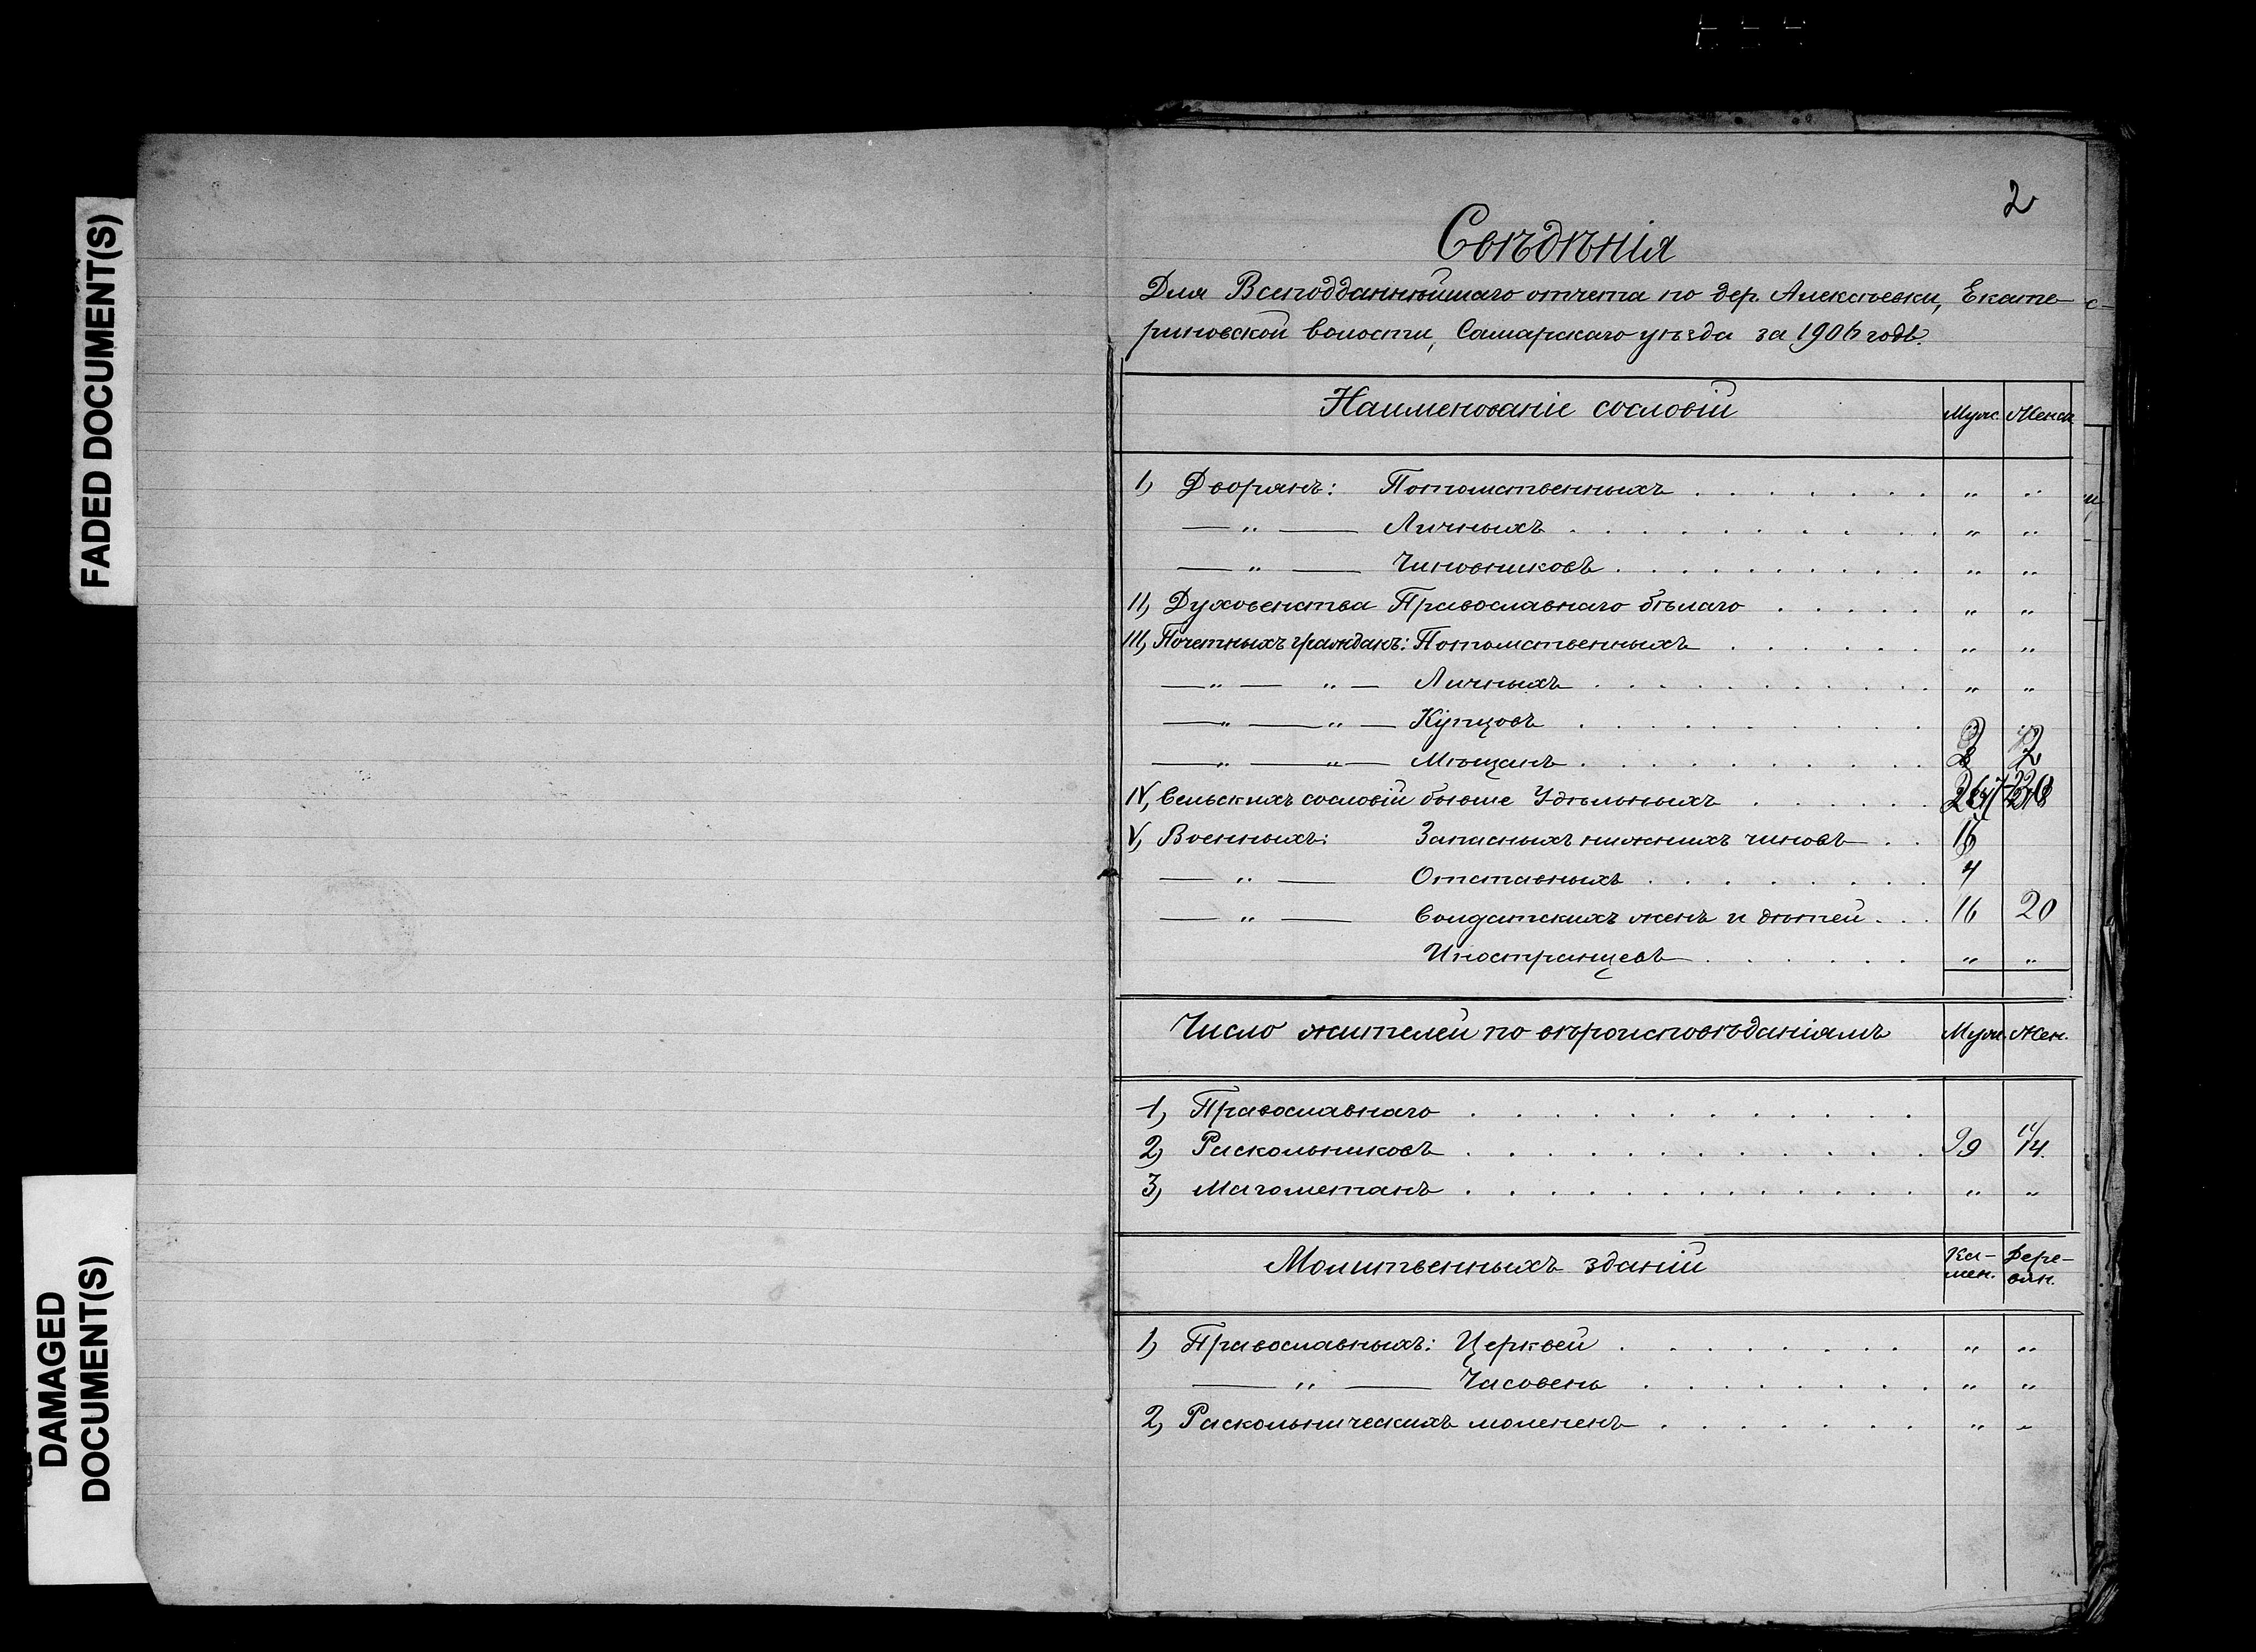 FADED DOCUMENT(S)
DAMAGED
DOCUMENT(S)
2
Свѣдѣнія
Для Всеподданнѣйшаго отчета по дер. Алексѣевки, Екате-
риновской волости, Самарскаго уѣзда за 1906 годъ.
Наименованіе сословій Муж. Женск
I, Дворянъ: Потомственныхъ . . . . . . . „ „
— „ — Личныхъ . . . . . . . . . . „ „
— „ — Чиновниковъ . . . . . . . . . „ „
II, Духовенства Православнаго бѣлаго . . . . . „ „
III, Почетныхъ гражданъ: Потомственныхъ . . . . . . „ „
— „ — „ — Личныхъ . . . . . . . . . . . „ „
— „ — „ — Купцовъ . . . . . . . . . .
— „ — „ — Мѣщанъ . . . . . . . . . . 2
IV, Сельскихъ сословій бывше Удѣльныхъ . . . . . .
V, Военныхъ: Запасныхъ нижнихъ чиновъ . .
— „ — Отставныхъ . . . . . . . . 4
— „ — Солдатскихъ женъ и дѣтей . . . 16 20
Иностранцевъ . . . . . . „ „
Число жителей по вѣроисповѣданіямъ Муж. Жен.
1, Православнаго . . . . . . . . . . . .
2, Раскольниковъ . . . . . . . . . . . . 9 14.
3, Магометанъ . . . . . . . . . . . . „ „
Молитвенныхъ зданій Ка- Дере-
мен. вян.
1, Православныхъ: Церквей . . . . . . . . „ „
— „ — Часовень . . . . . . . . „ „
2, Раскольническихъ моленень . . . . . . . „ „